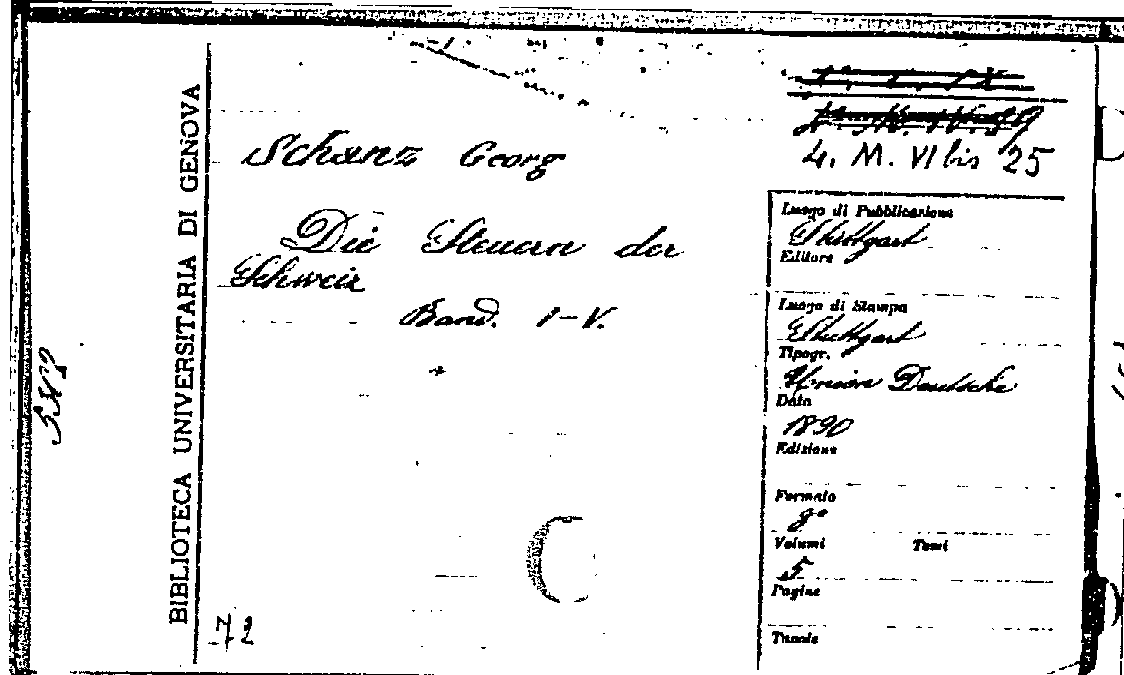 BIBLIOTECA UNIVERSITARIA DI GENOVA
4. M. VI bis 25
Schanz Georg
Die Steuern der
Schweiz
Band. I-V.
72
Luogo di Pubblicazione
Stuttgart
Editore
Luogo di Stampa
Stuttgart
Tipogr.
Union Deutsche
Data
1890
Edizione
Formato
8°
Volumi Tomi
5
Pagine
Tavole